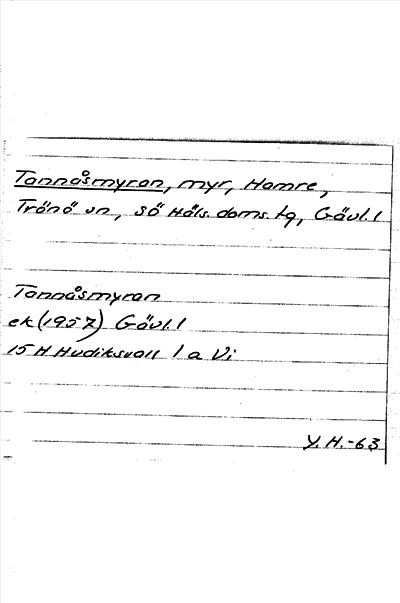 Tannåsmyran, myr, Hamre,
Trönö sn, Sö Häls. doms. tg, Gävl. l
Tannåsmyran
ek (1957) Gävl. l
15 H Hudiksvall 1 a Vi
Y. H. -63